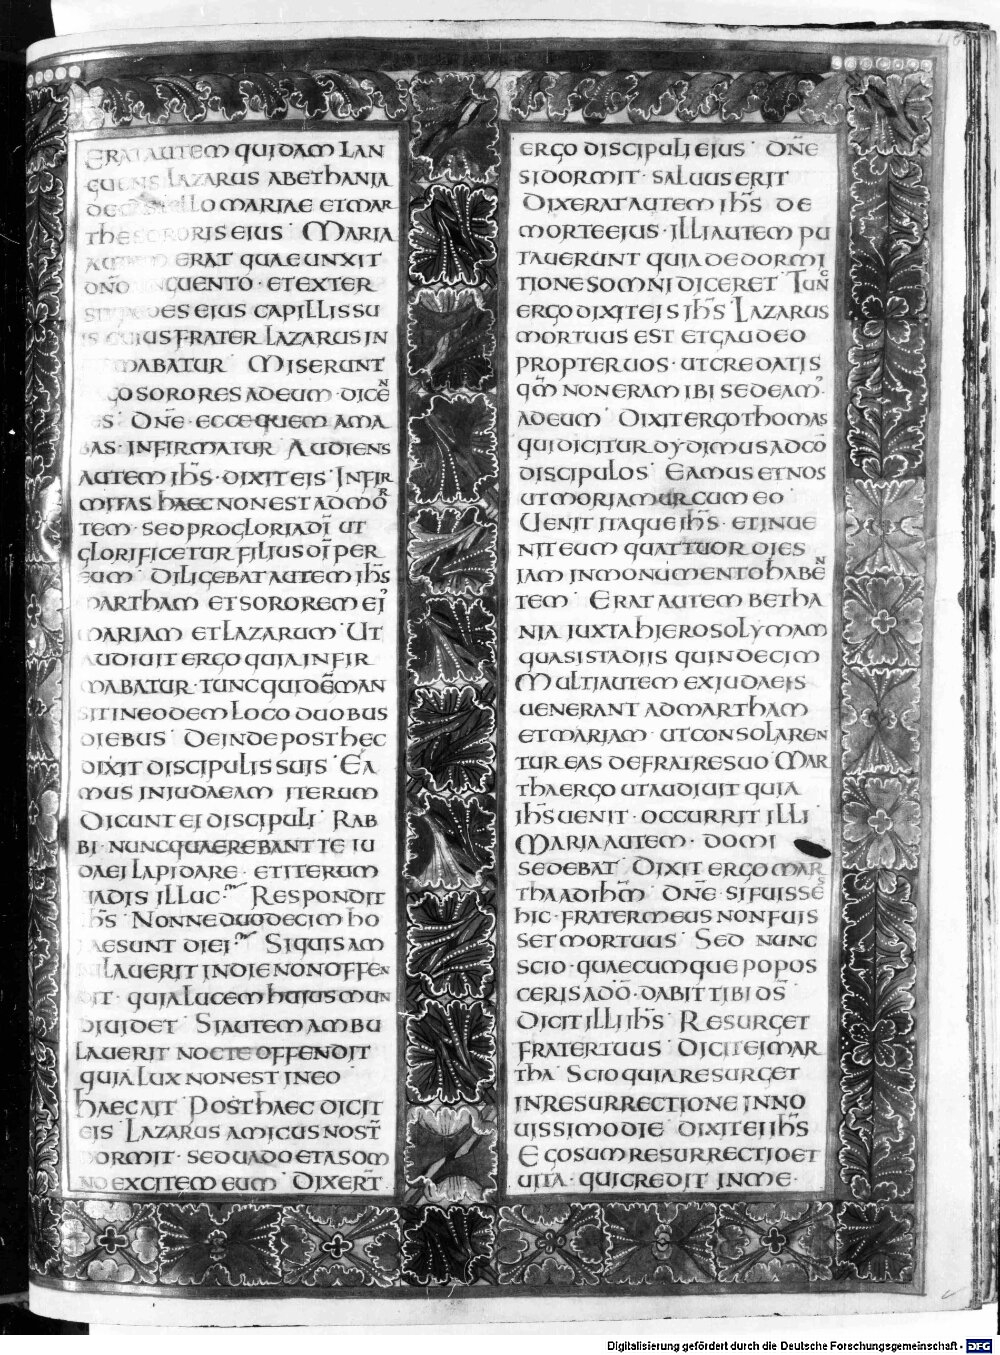 ERAT AUTEM QUIDAM LAN
GUENS LAZARUS A BETHANIA
DE CASTELLO MARIAE ET MAR
THE SORORIS EIUS · MARIA
AUTEM ERAT QUAE UNXIT
DNO UNGUENTO · ET EXTER
SIT PEDES EIUS CAPILLIS SU
IS CUIUS FRATER LAZARUS IN
MABATUR MISERUNT
GO SORORES AD EUM · DICEN
ES · DNE · ECCE QUEM AMA
BAS · INFIRMATUR AUDIENS
AUTEM IHS · DIXIT EIS · INFIR
MITAS HAEC NON EST AD MOR
TEM · SED PRO GLORIA DI UT
GLORIFICETUR FILIUS DI PER
EUM · DILIGEBAT AUTEM IHS
MARTHAM ET SOROREM EI'
MARIAM ET LAZARUM · UT
AUDIUIT ERGO QUIA INFIR
MABATUR · TUNC QUIDE MAN
SIT IN EODEM LOCO DUOBUS
DIEBUS · DEINDE POST HEC
DIXIT DISCIPULIS SUIS · EA
MUS IN JUDAEAM ITERUM
DICUNT EI DISCIPULI · RAB
BI · NUNC QUAEREBANT TE IU
DAEI LAPIDARE · ET ITERUM
UADIS ILLUC · RESPONDIT
IHS · NONNE DUODECIM HO
RAE SUNT DIEI · SI QUIS AM
BULAUERIT IN DIE NON OFFEN
DIT · QUIA LUCEM HUIUS MUN
DI UIDET · SI AUTEM AMBU
LAUERIT NOCTE OFFENDIT
QUIA LUX NON EST IN EO
HAEC AIT POST HAEC DICIT
EIS · LAZARUS AMICUS NOST
DORMIT · SED UADO ET A SOM
NO EXCITEM EUM · DIXERT
ERGO DISCIPULI EIUS · DNE
SI DORMIT · SALUUS ERIT
DIXERAT AUTEM IHS DE
MORTE EIUS · ILLI AUTEM PU
TAUERUNT QUIA DE DORMI
TIONE SOMNI DICERET TUNC
ERGO DIXIT EIS IHS · LAZARUS
MORTUUS EST ET GAUDEO
PROPTER UOS · UT CREDATIS
QM NON ERAM IBI SED EAM'
AD EUM · DIXIT ERGO THOMAS
QUI DICITUR DYDIMUS AD CO
DISCIPULOS · EAMUS ET NOS
UT MORIAMUR CUM EO ·
UENIT ITAQUE IHS · ET INUE
NIT EUM QUATTUOR DIES
IAM IN MONUMENTO HABEN
TEM · ERAT AUTEM BETHA
NIA IUXTA HIEROSOLYMAM
QUASI STADIIS QUINDECIM
MULTI AUTEM EX IUDAEIS
UENERANT AD MARTHAM
ET MARIAM · UT CONSOLAREN
TUR EAS DE FRATRE SUO MAR
THA ERGO UT AUDIUIT QUIA
IHS UENIT · OCCURRIT ILLI
MARIA AUTEM · DOMI
SEDEBAT · DIXIT ERGO MAR
THA AD IHM · DNE · SI FUISSES
HIC · FRATER MEUS NON FUIS
SET MORTUUS · SED NUNC
SCIO · QUAECUMQUE POPOS
CERIS A DO · DABIT TIBI DS
DICIT ILLI IHS · RESURGET
FRATER TUUS · DICIT EI MAR
THA · SCIO QUIA RESURGET
IN RESURRECTIONE IN NO
UISSIMO DIE · DIXIT EI IHS
EGO SUM RESURRECTIO ET
UITA · QUI CREDIT IN ME ·
Digitalisierung gefördert durch die Deutsche Forschungsgemeinschaft - DFG